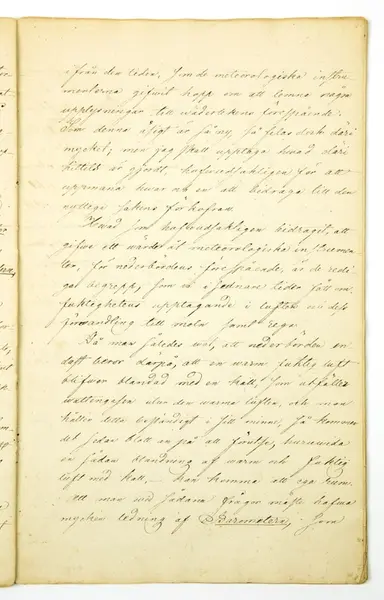 ifrån den tiden, som de meteorologiska instru-
menterna gifvit hopp om att lemna någon
upplysningar till väderlekens förespående.
Som denna åsigt är så ny, så felas dock däri
mycket; men jag skall upptaga hvad däri
hittils är gjordt, hufvudsakligen för att
uppmana hvar och en att bidraga till den
nyttiga sakens förkofran.
Hvad som hufvudsakligen bidragit, att
gifva ett värde åt meteorologiska instrumen-
ter, för nederbördens förespående, är de redi-
ga begrepp, som vi i sednare tider fått om
fuktighetens upptagande i luften och dess
förvandling till moln samt regn.
Då man således vet, att nederbörden en-
dast beror därpå, att en varm fuktig luft
blifver blandad med en kall, som utfäller
vattengasen utur den varma luften, och man
håller detta beständigt i sitt minne, så kommer
det sedan blott an på att förutse, huruvida
en sådan blandning af varm och fuktig
luft med kall, — kan komma att ega rum.
Att man vid sådana frågor måste hafva
mycken ledning af Barometern, som